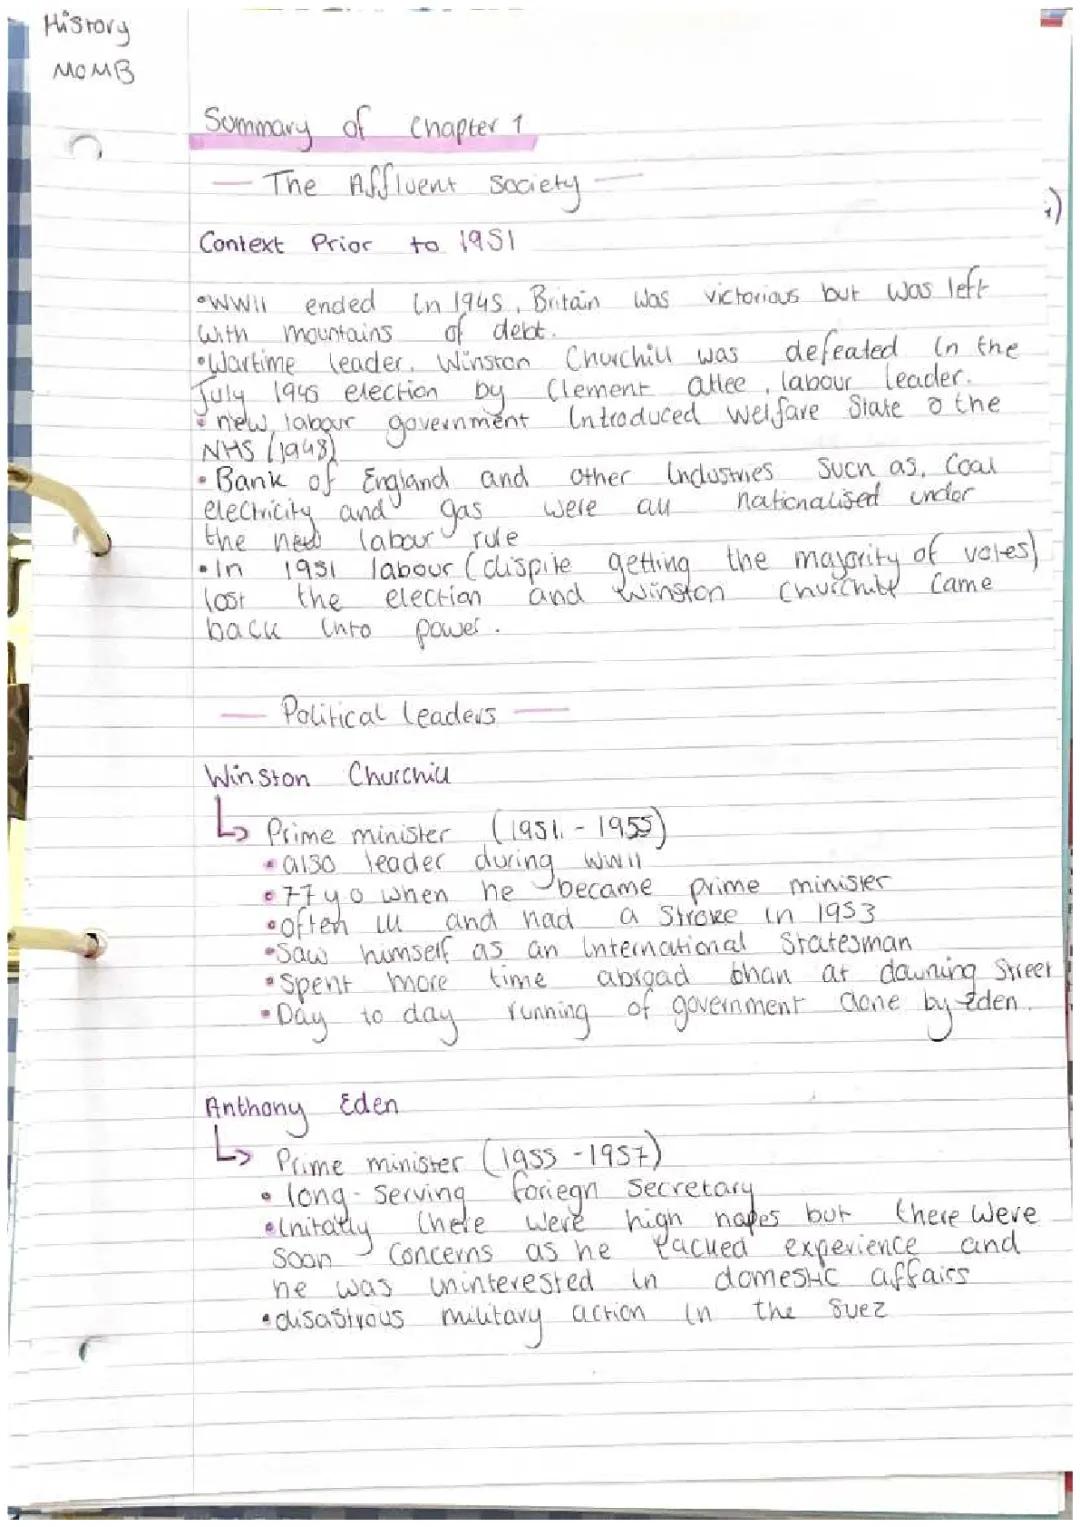 History
MOMB
Summary of Chapter 1
— The Affluent Society —
Context Prior to 1951
•WWII ended in 1945, Britain was victorious but was left
with mountains of debt.
•Wartime leader, Winston Churchill was defeated in the
July 1945 election by Clement attlee, labour leader.
• new labour government introduced welfare State & the
NHS (1948)
• Bank of England and other industries such as, Coal
electricity and gas were all nationalised under
the new labour rule
•In 1951 labour (dispite getting the majority of votes)
lost the election and Winston Churchill came
back into power.
— Political leaders —
Winston Churchill
↳ Prime minister (1951 - 1955)
•also leader during WWII
•77 yo when he became prime minister
•often ill and had a stroke in 1953
•Saw himself as an international Statesman
•Spent more time abroad than at downing Street
•Day to day running of government done by Eden.
Anthony Eden
↳ Prime minister (1955 - 1957)
• long-serving foriegn secretary
•initally there were high hopes but there were
soon concerns as he lacked experience and
he was uninterested in domestic affairs
•disastrous military action in the Suez